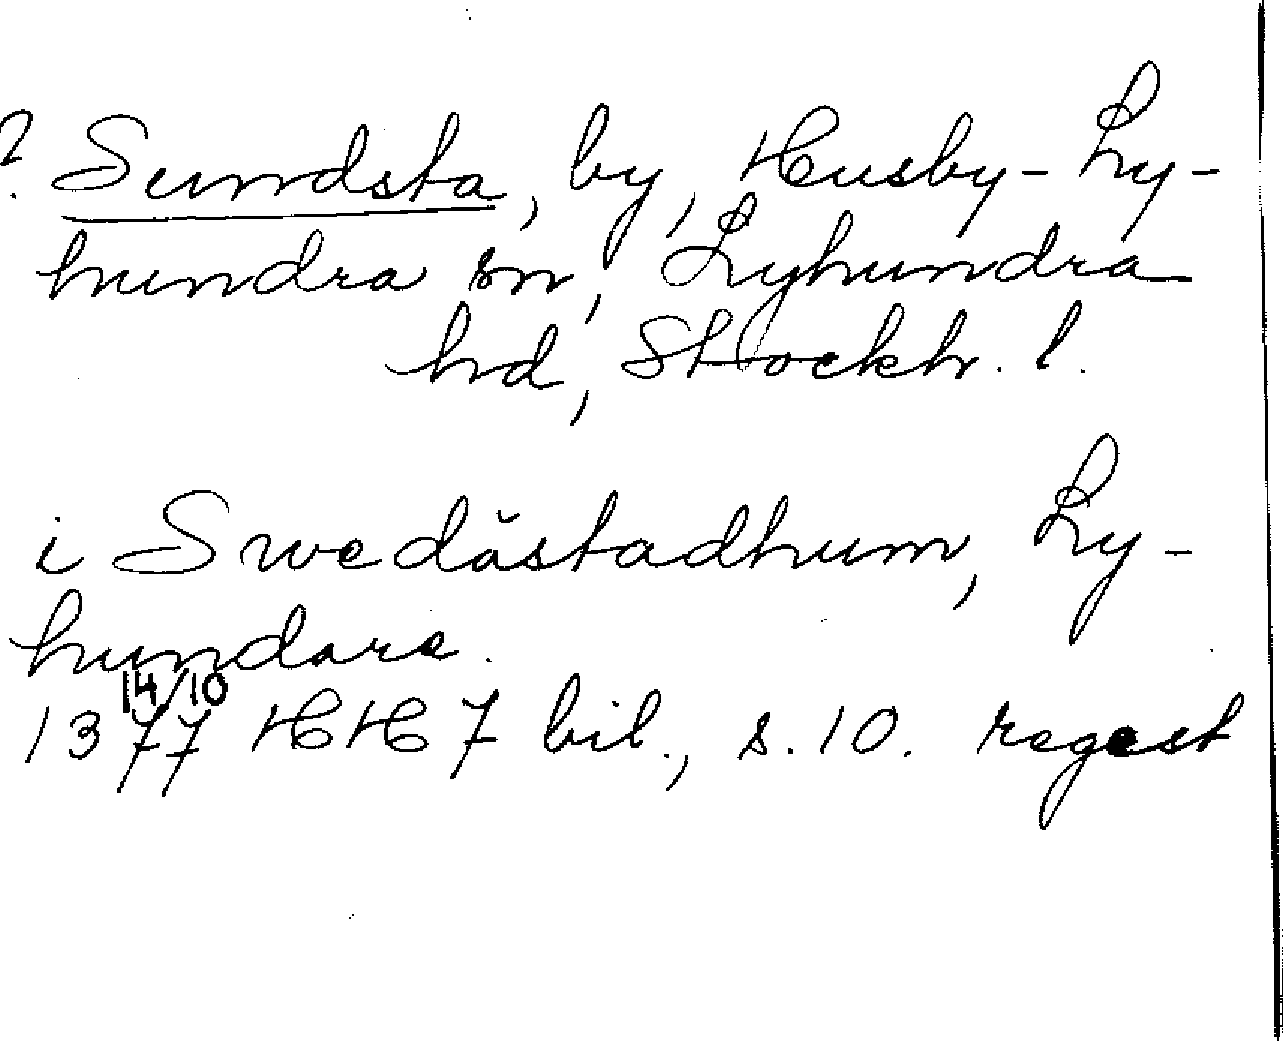 ? Sundsta, by, Husby-Ly-
hundra sn, Lyhundra
hd, Stockh. l.
i Swedåstadhum, Ly-
hundare.
14/10
1377 HH 7 bil., s. 10. regest